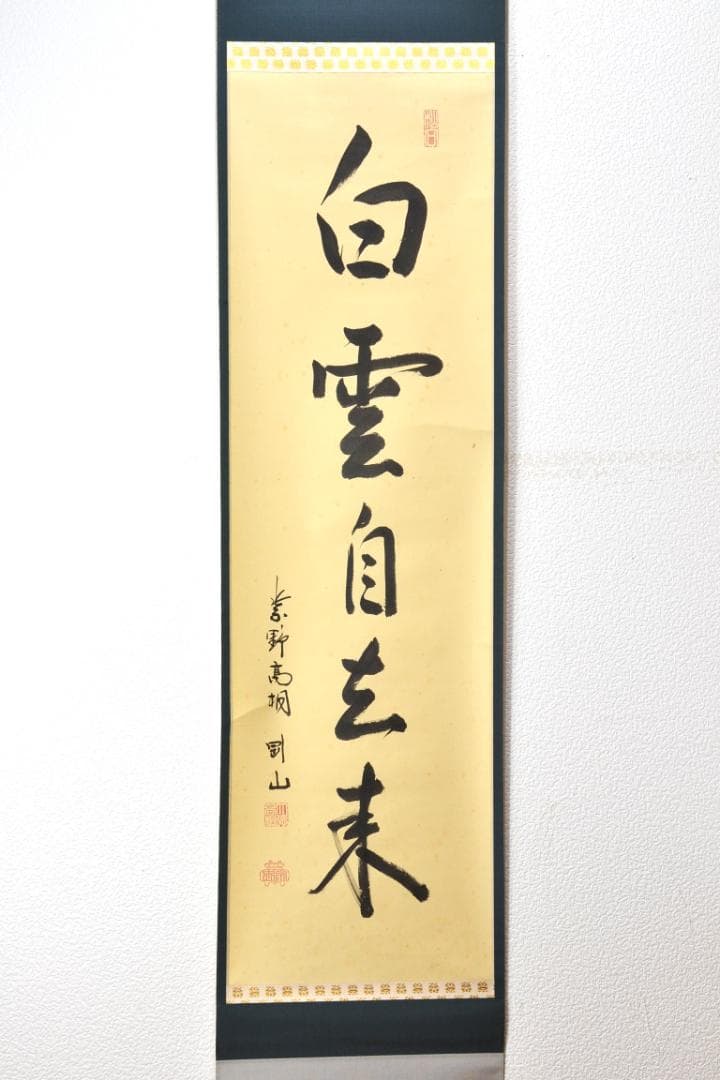 白雲自去来
紫野高桐 剛山